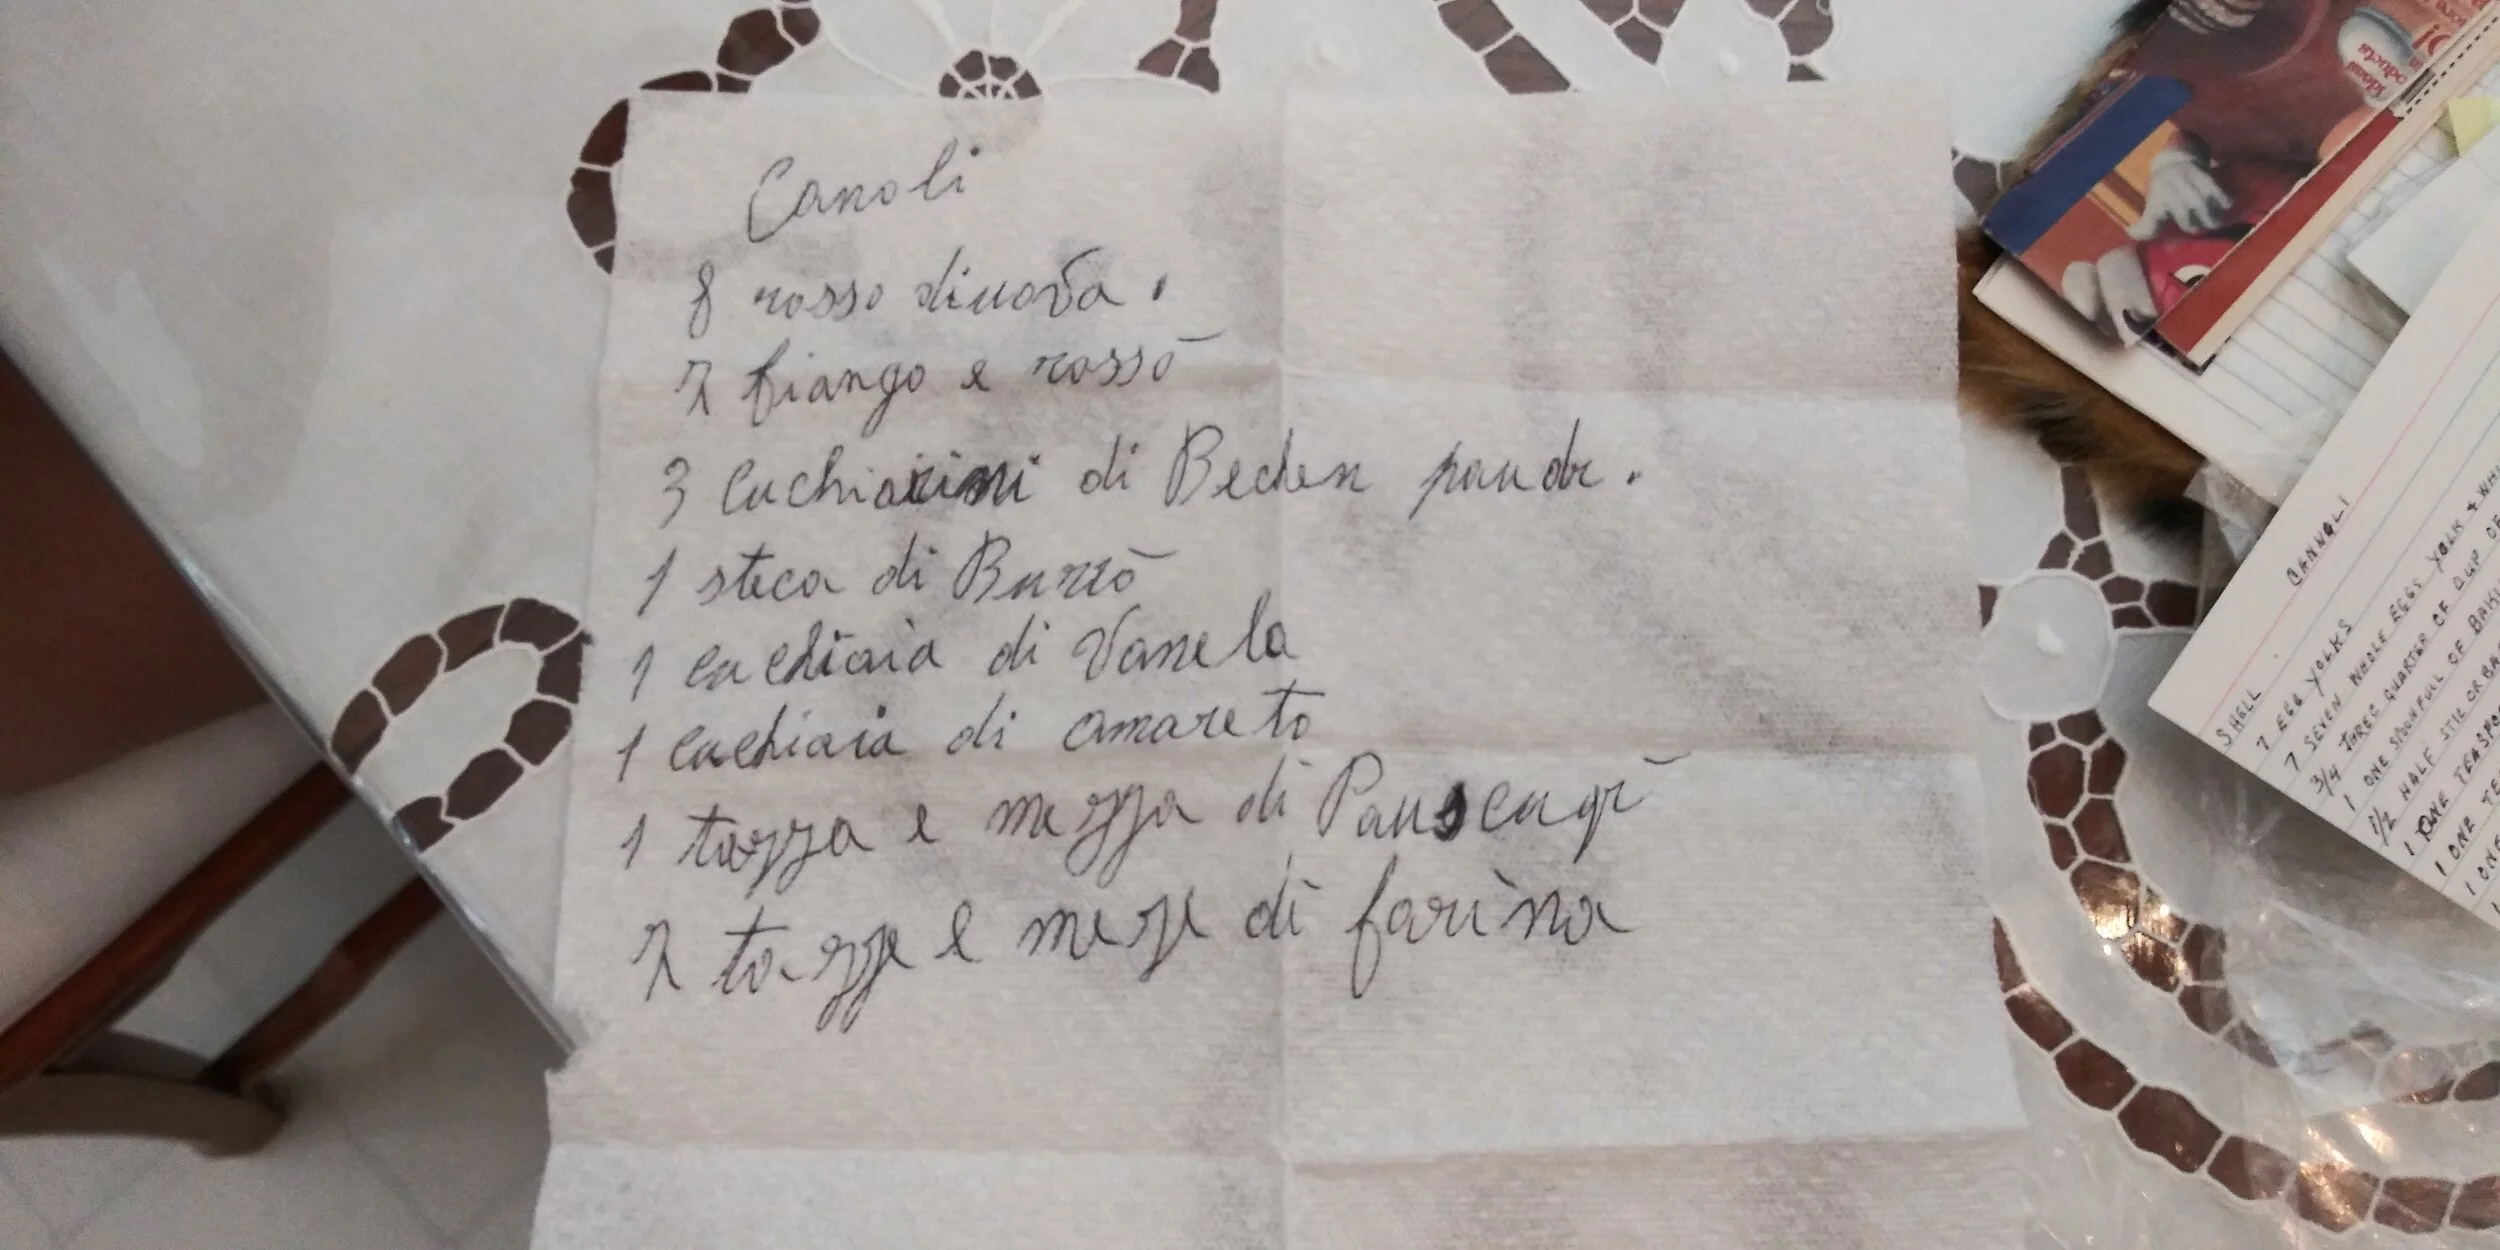 Canoli
8 rosso di uova.
7 biango e rosso
3 cuchiarini di Bechen pauda.
1 steca di Burro
1 cuchiaia di Vanela
1 cuchiaia di amareto
1 tazza e mezza di
7 tazze e meze di farina
ideas
products
CANNOLI
SHELL
7 EGG YOLKS
7 SEVEN WHOLE EGGS YOLK & WHI
3/4 THREE QUARTER OF CUP OF
1 ONE SPOONFULL OF BAKI
1/2 HALF STIC OR BA
1 ONE TEASPO
1 ONE TE
1 ONE